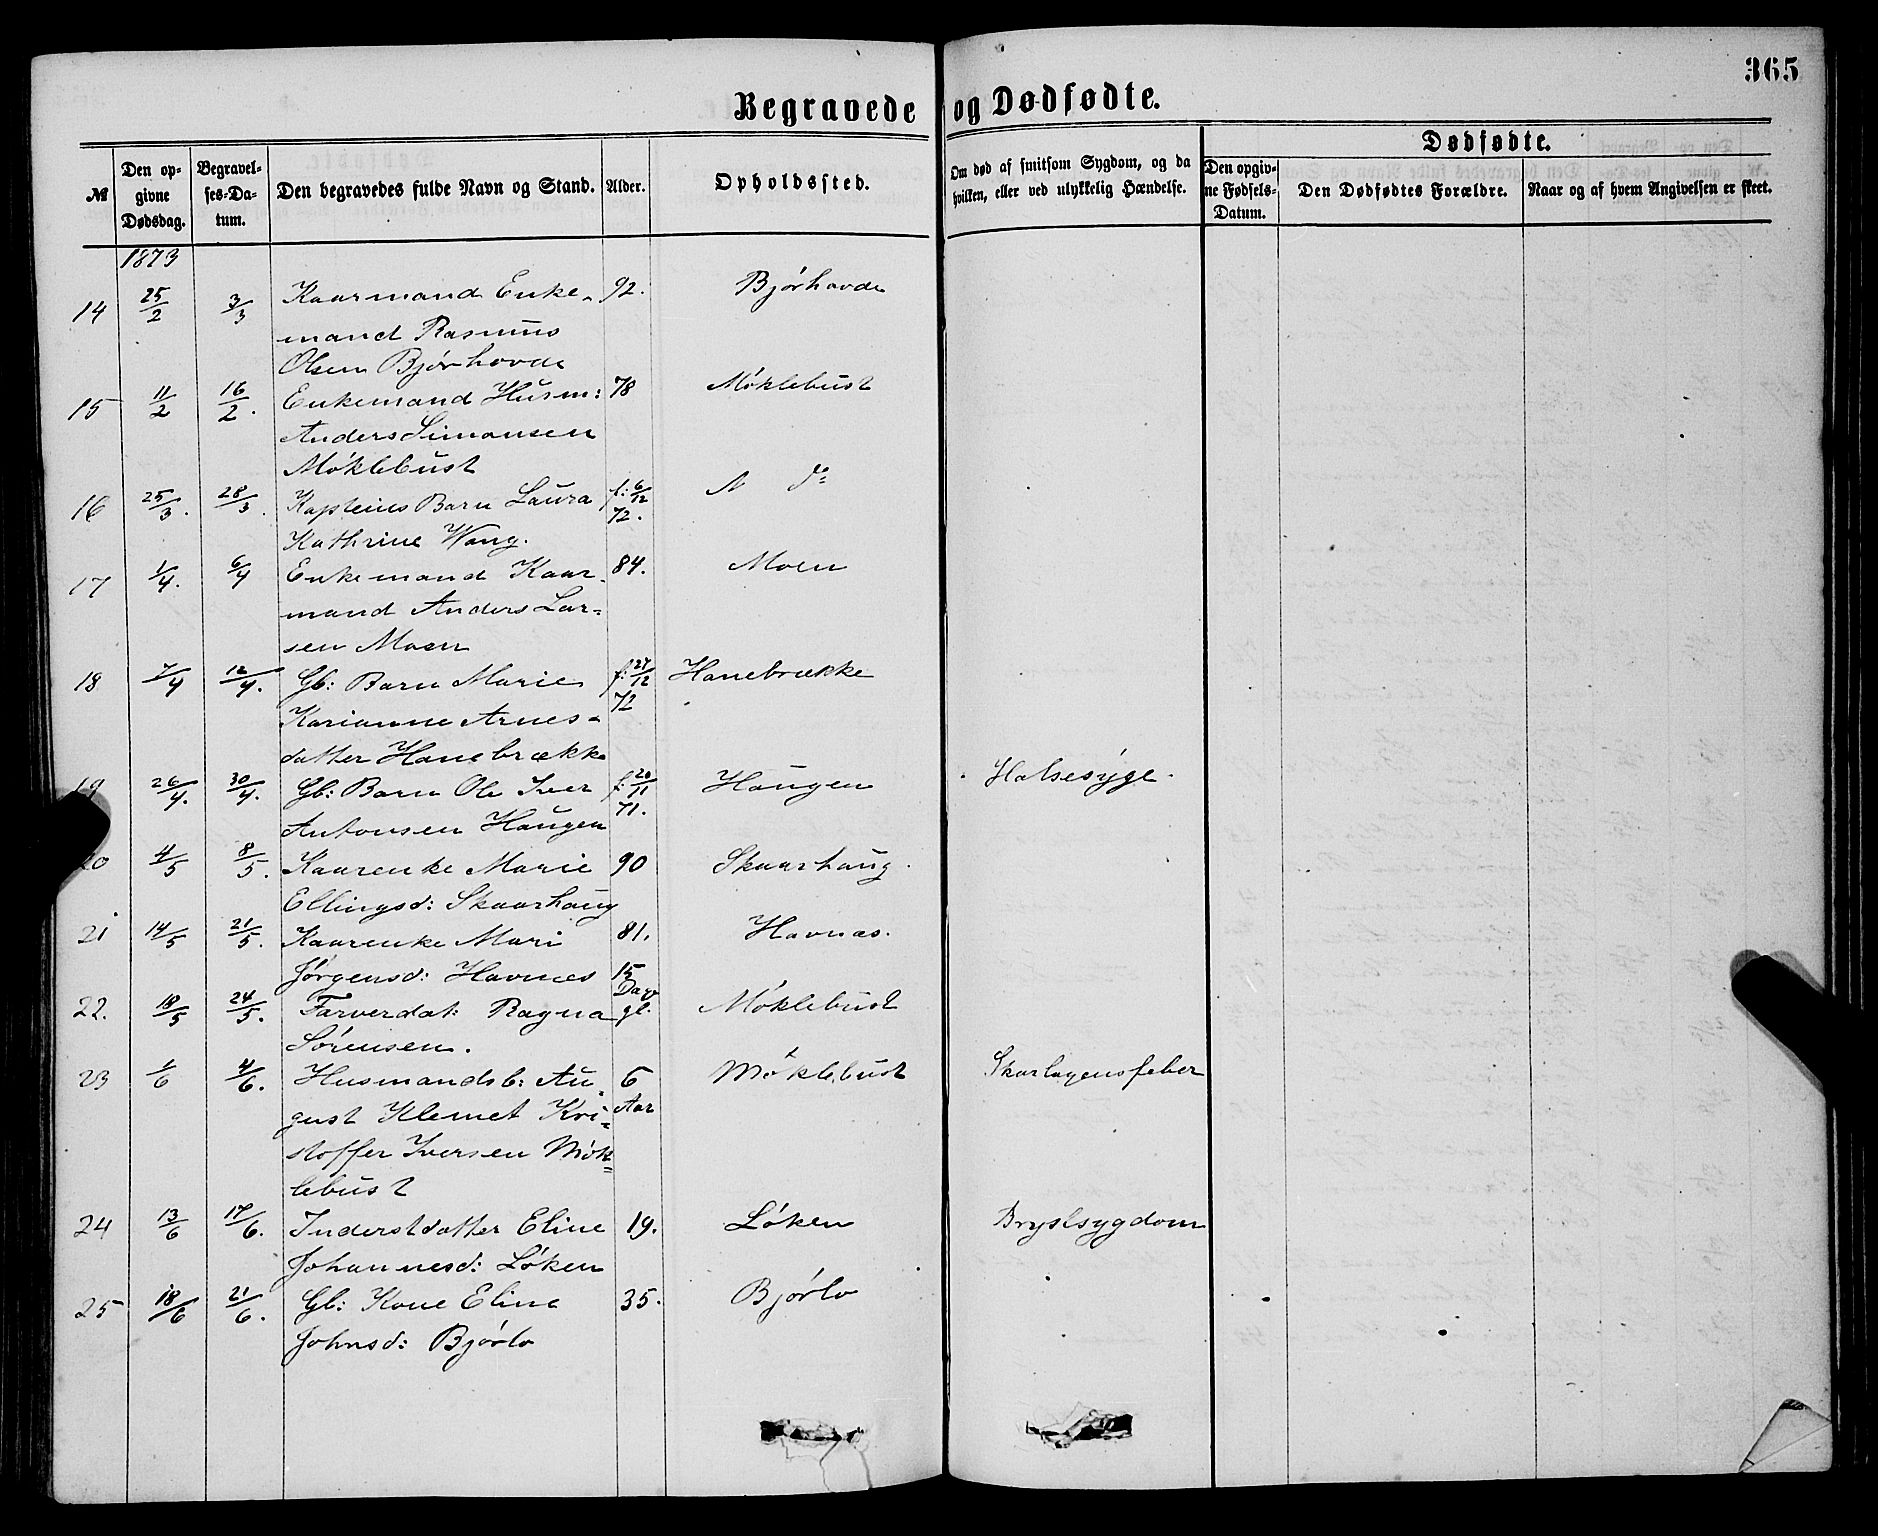 365
Begravede og Dødfødte.
№
Den opgivne Dødsdag.
Begravelses-Datum.
Den begravedes fulde Navn og Stand.
Alder.
Opholdssted.
Om død af smitsom Sygdom, og da hvilken, eller ved ulykkelig Hændelse.
Dødfødte.
Den opgivne Fødsels-Datum.
Den Dødfødtes Forældre.
Naar og af hvem Angivelsen er skeet.
1873
14 25/2 3/3 Kaarmand Enke- 92. Bjørhovde
mand Rasmus
Olsen Bjørhovde
15 11/2 16/2. Enkemand Husm: 78 Møklebust
Anders Simonsen
Møklebust
16 25/3. 28/3. Kapteins Barn Laura f: 6/12 72. N do
Kathrine Wang.
17 1/4. 6/4 Enkemand Kaar- 84. Moen
mand Anders Lar=
sen Moen
18 7/4 12/4. Gb: Barn Marie f: 27/12 72 Hanebrække
Karianne Arnes-
datter Hanebrække
19 26/4. 30/4. Gb: Barn Ole Iver f: 20/11 71. Haugen Halsesyge.
Antonsen Haugen
20 4/5 8/5. Kaarenke Marie 90 Skaarhaug.
Ellingsd: Skaarhaug
21 14/5 21/5. Kaarenke Mari 81. Havnæs.
Jørgensd: Havnes
22. 18/5 24/5. Farverdat: Ragna 15 Dage gl. Møklebust
Sørensen.
23 1/6 4/6. Husmandsb: Au- 6 Aar Møklebust Skarlagensfeber
gust Klemet Kri=
stoffer Iversen Møk=
lebust
24 13/6 17/6. Inderstdatter Eline 19. Løken Brystsygdom
Johannesd: Løken
25 18/6 21/6. Gb: Kone Eline 35. Bjørlo
Johnsd: Bjørlo